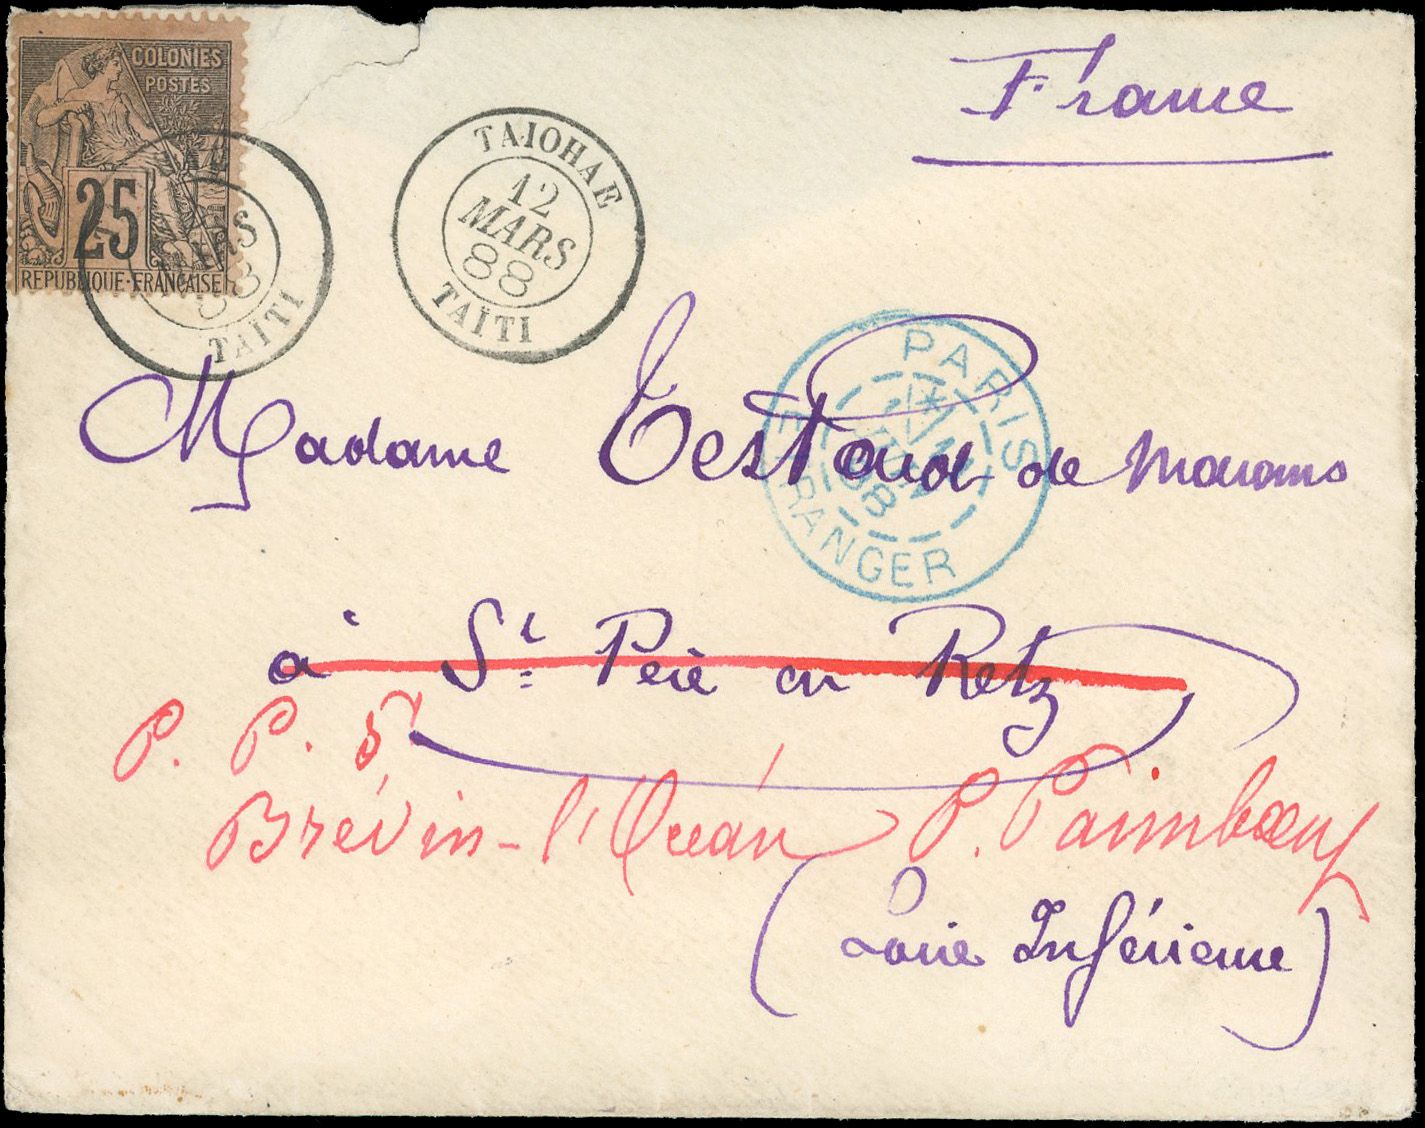 COLONIES
POSTES
25
REPUBLIQUE-FRANÇAISE
MARS
88
TAÏTI
TAIOHAE
12
MARS
88
TAÏTI
France
PARIS
ETRANGER
Madame Testard de Marans
à St Père en Retz
P. P. 5
Brévin-l'Océan P. Paimbœuf
(Loire Inférieure)